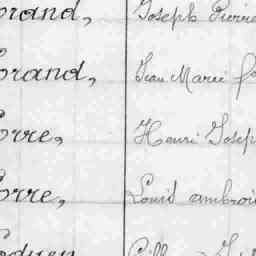 orand, Joseph Pierre
orand, Jean Marie
orre, Henri Josep
orre, Louis ambroi